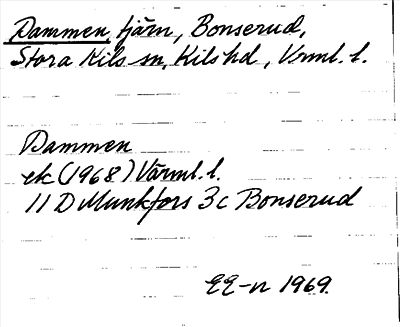 Dammen, tjärn, Bonserud,
Stora Kils sn, Kils hd, Vrml. l.
Dammen
ek (1968) Värml. l.
11 D Munkfors 3c Bonserud
EE-n 1969.